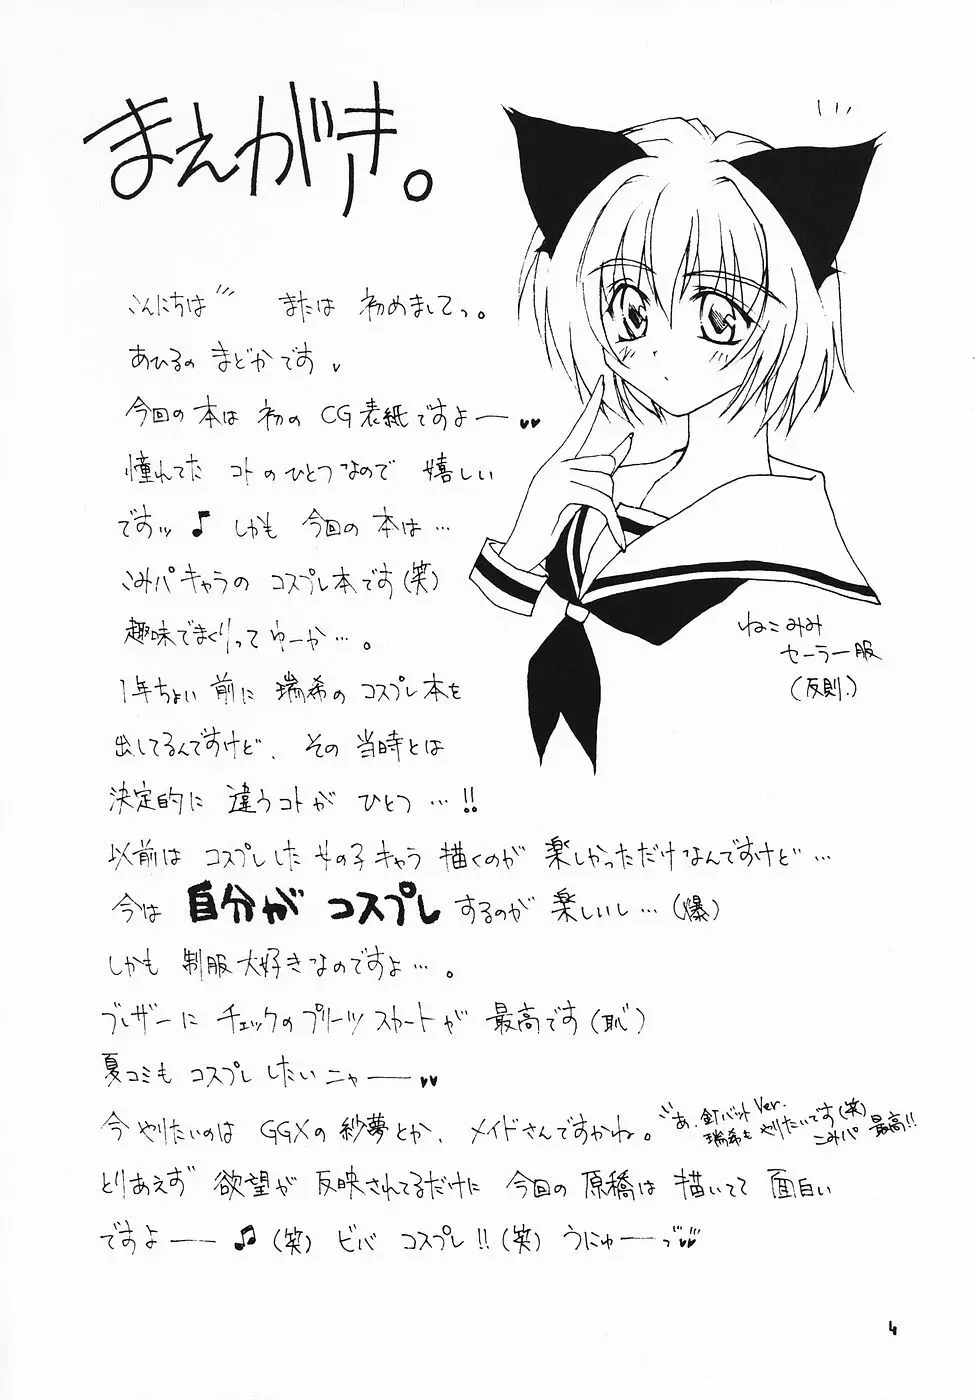 まえがき。
こんにちは〃 または 初めましてっ。
あひるの まどかです
今回の 本は 初の CG表紙ですよー♥♥
憧れてた コトの ひとつなので 嬉しい
ですッ♪ しかも 今回の 本は…
こみパキャラの コスプレ本です(笑)
趣味でまくりって ゆーか…。
1年ちょい 前に 瑞希の コスプレ本を
出してるんですけど、 その 当時とは
決定的に 違うコトが ひとつ…!!
以前は コスプレした 女の子キャラ 描くのが 楽しかっただけなんですけど…
今は 自分が コスプレするのが 楽しいし…(爆)
しかも 制服大好きなのですよ…。
ブレザーに チェックのプリーツ スカートが 最高です(恥)
夏コミも コスプレ したいニャー♥♥
今 やりたいのは GGXの 紗夢とか、 メイドさんですかね。
あ、釘バットVer.
瑞希も やりたいです(笑)
こみパ 最高!!
とりあえず 欲望が 反映されてるだけに 今回の 原稿は 描いてて 面白い
ですよー♫(笑) ビバ コスプレ!!(笑) うにゅーっ♥♥
ねこみみ
セーラー服
(反則。)
4